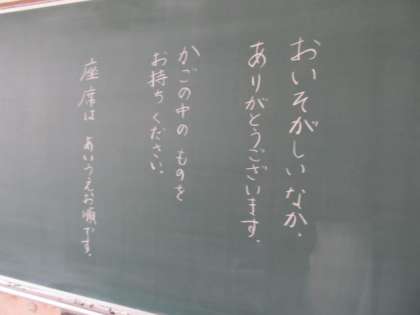 おいそがしいなか、
ありがとうございます。
かごの中のものを
お持ちください。
座席は あいうえお順です。